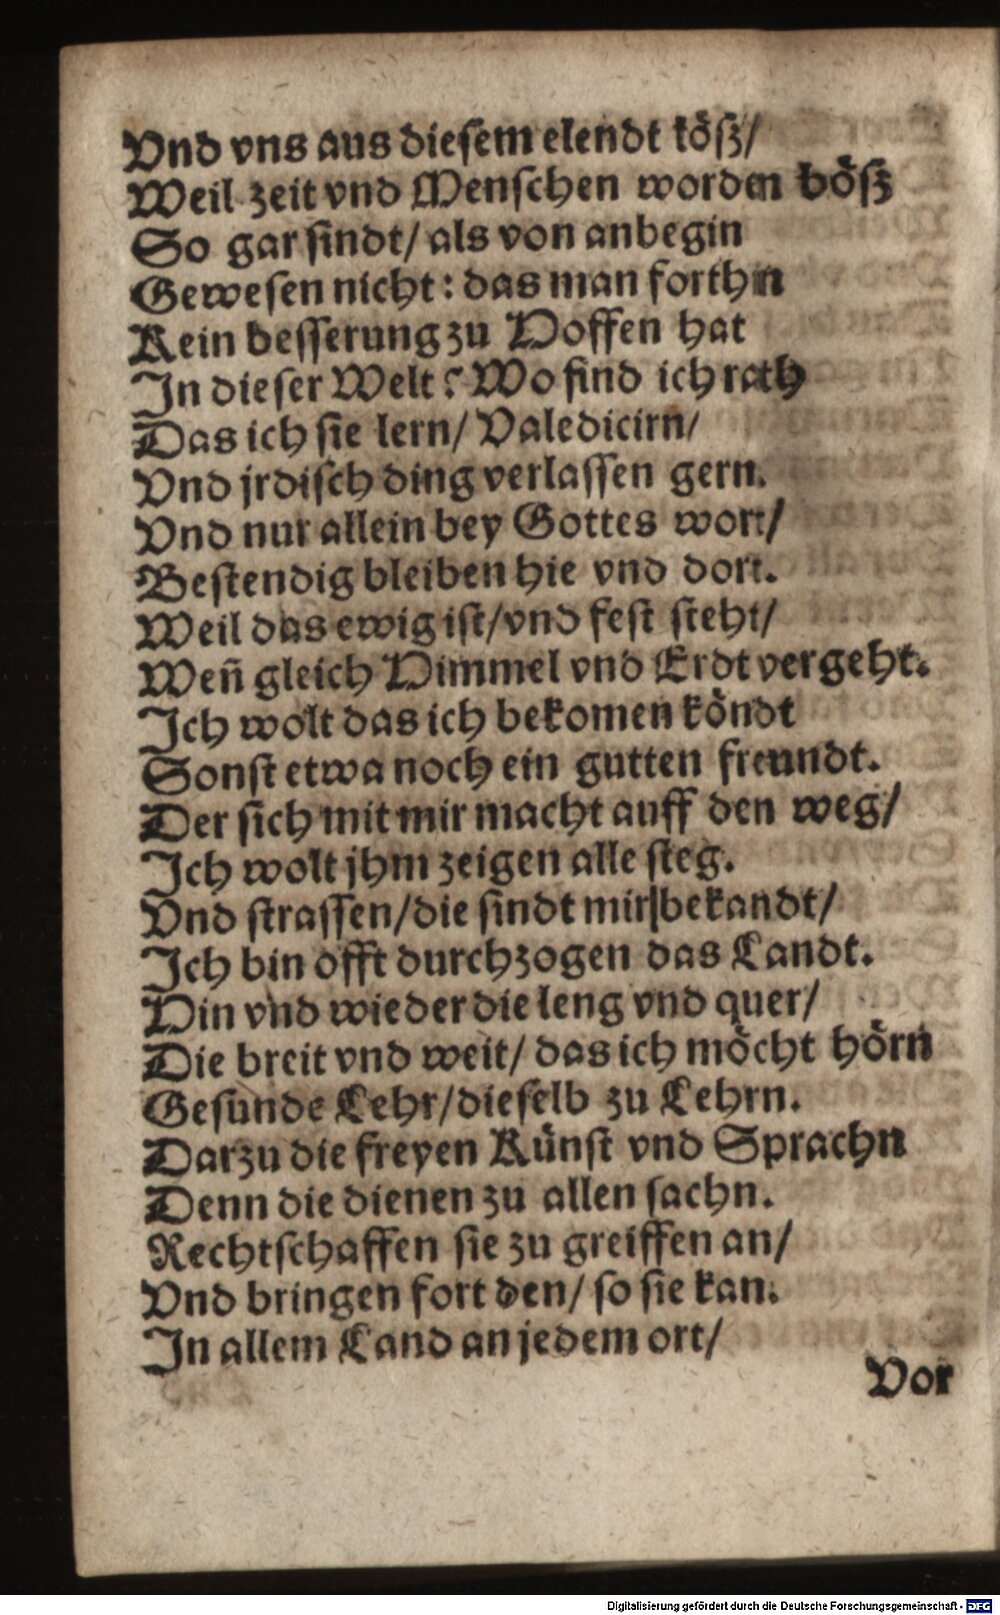 Vnd vns aus diesem elendt lösz/
Weil zeit vnd Menschen worden bösz
So gar sindt/ als von anbegin
Gewesen nicht: das man forthin
Kein besserung zu Hoffen hat
In dieser Welt? Wo find ich rath
Das ich sie lern/ Valedicirn/
Vnd jrdisch ding verlassen gern.
Vnd nur allein bey Gottes wort/
Bestendig bleiben hie vnd dort.
Weil das ewig ist/ vnd fest steht/
Weñ gleich Himmel vnd Erdt vergeht.
Ich wolt das ich bekomen köndt
Sonst etwa noch ein gutten freundt.
Der sich mit mir macht auff den weg/
Ich wolt jhm zeigen alle steg.
Vnd strassen/ die sindt mir bekandt/
Ich bin offt durchzogen das Landt.
Hin vnd wieder die leng vnd quer/
Die breit vnd weit/ das ich möcht hörn
Gesunde Lehr/ dieselb zu Lehrn.
Darzu die freyen Künst vnd Sprachn
Denn die dienen zu allen sachn.
Rechtschaffen sie zu greiffen an/
Vnd bringen fort den/ so sie kan.
In allem Land an jedem ort/
Vor
Digitalisierung gefördert durch die Deutsche Forschungsgemeinschaft - DFG